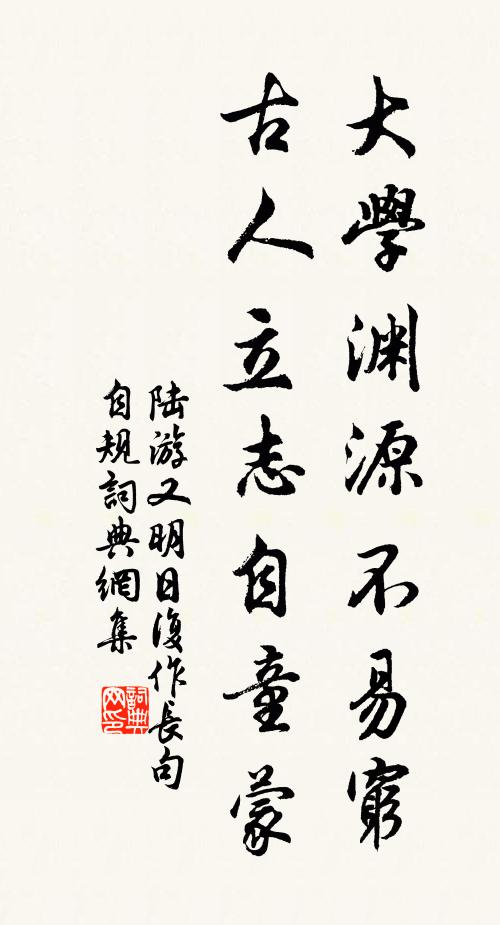 大學渊源不易窮
古人立志自童蒙
陆游又明日復作長句
自规詞典網集
詞典网印